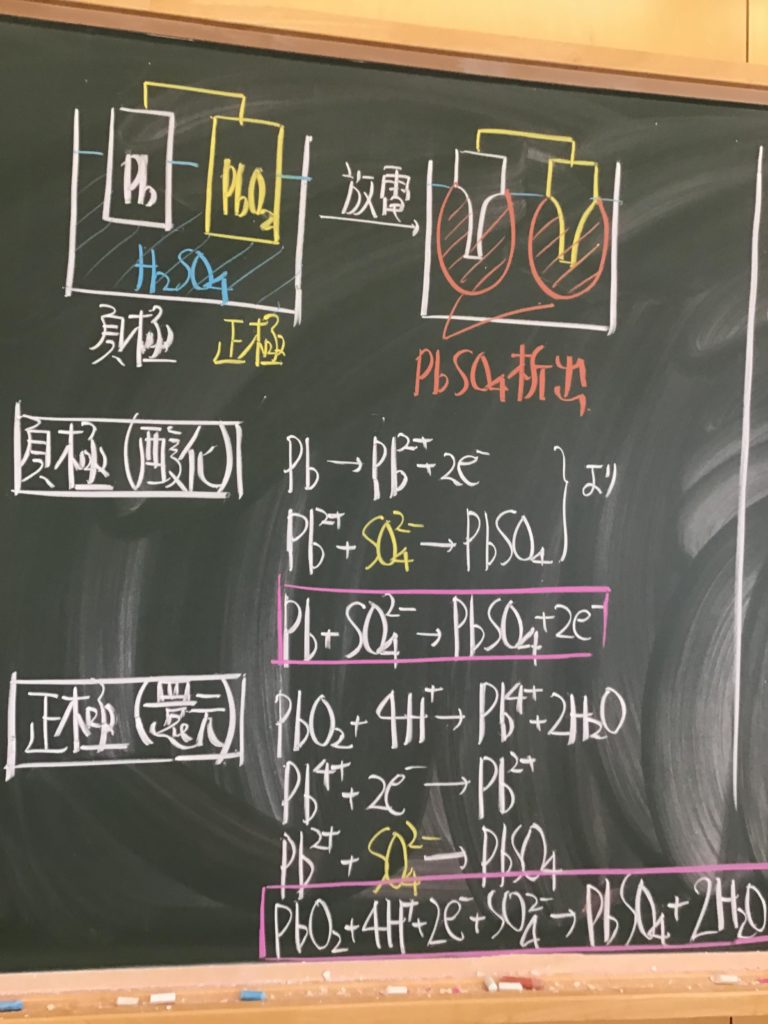 Pb PbO₂
放電
H₂SO₄
負極 正極
PbSO₄析出
負極(酸化)
Pb → Pb²⁺+2e⁻
Pb²⁺+SO₄²⁻→PbSO₄
より
Pb+SO₄²⁻→PbSO₄+2e⁻
正極(還元)
PbO₂+4H⁺→Pb⁴⁺+2H₂O
Pb⁴⁺+2e⁻→Pb²⁺
Pb²⁺+SO₄²⁻→PbSO₄
PbO₂+4H⁺+2e⁻+SO₄²⁻→PbSO₄+2H₂O